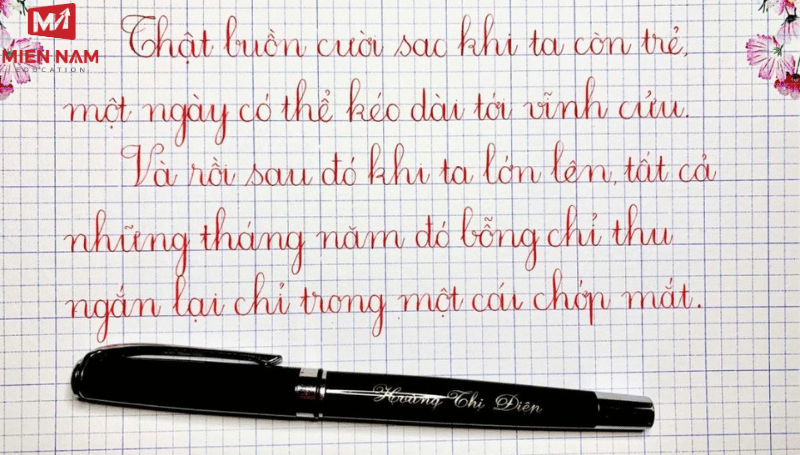 MIỀN NAM
EDUCATION
Thật buồn cười sao khi ta còn trẻ,
một ngày có thể kéo dài tới vĩnh cửu.
Và rồi sau đó khi ta lớn lên, tất cả
những tháng năm đó bỗng chỉ thu
ngắn lại chỉ trong một cái chớp mắt.
Hoàng Thị Diên